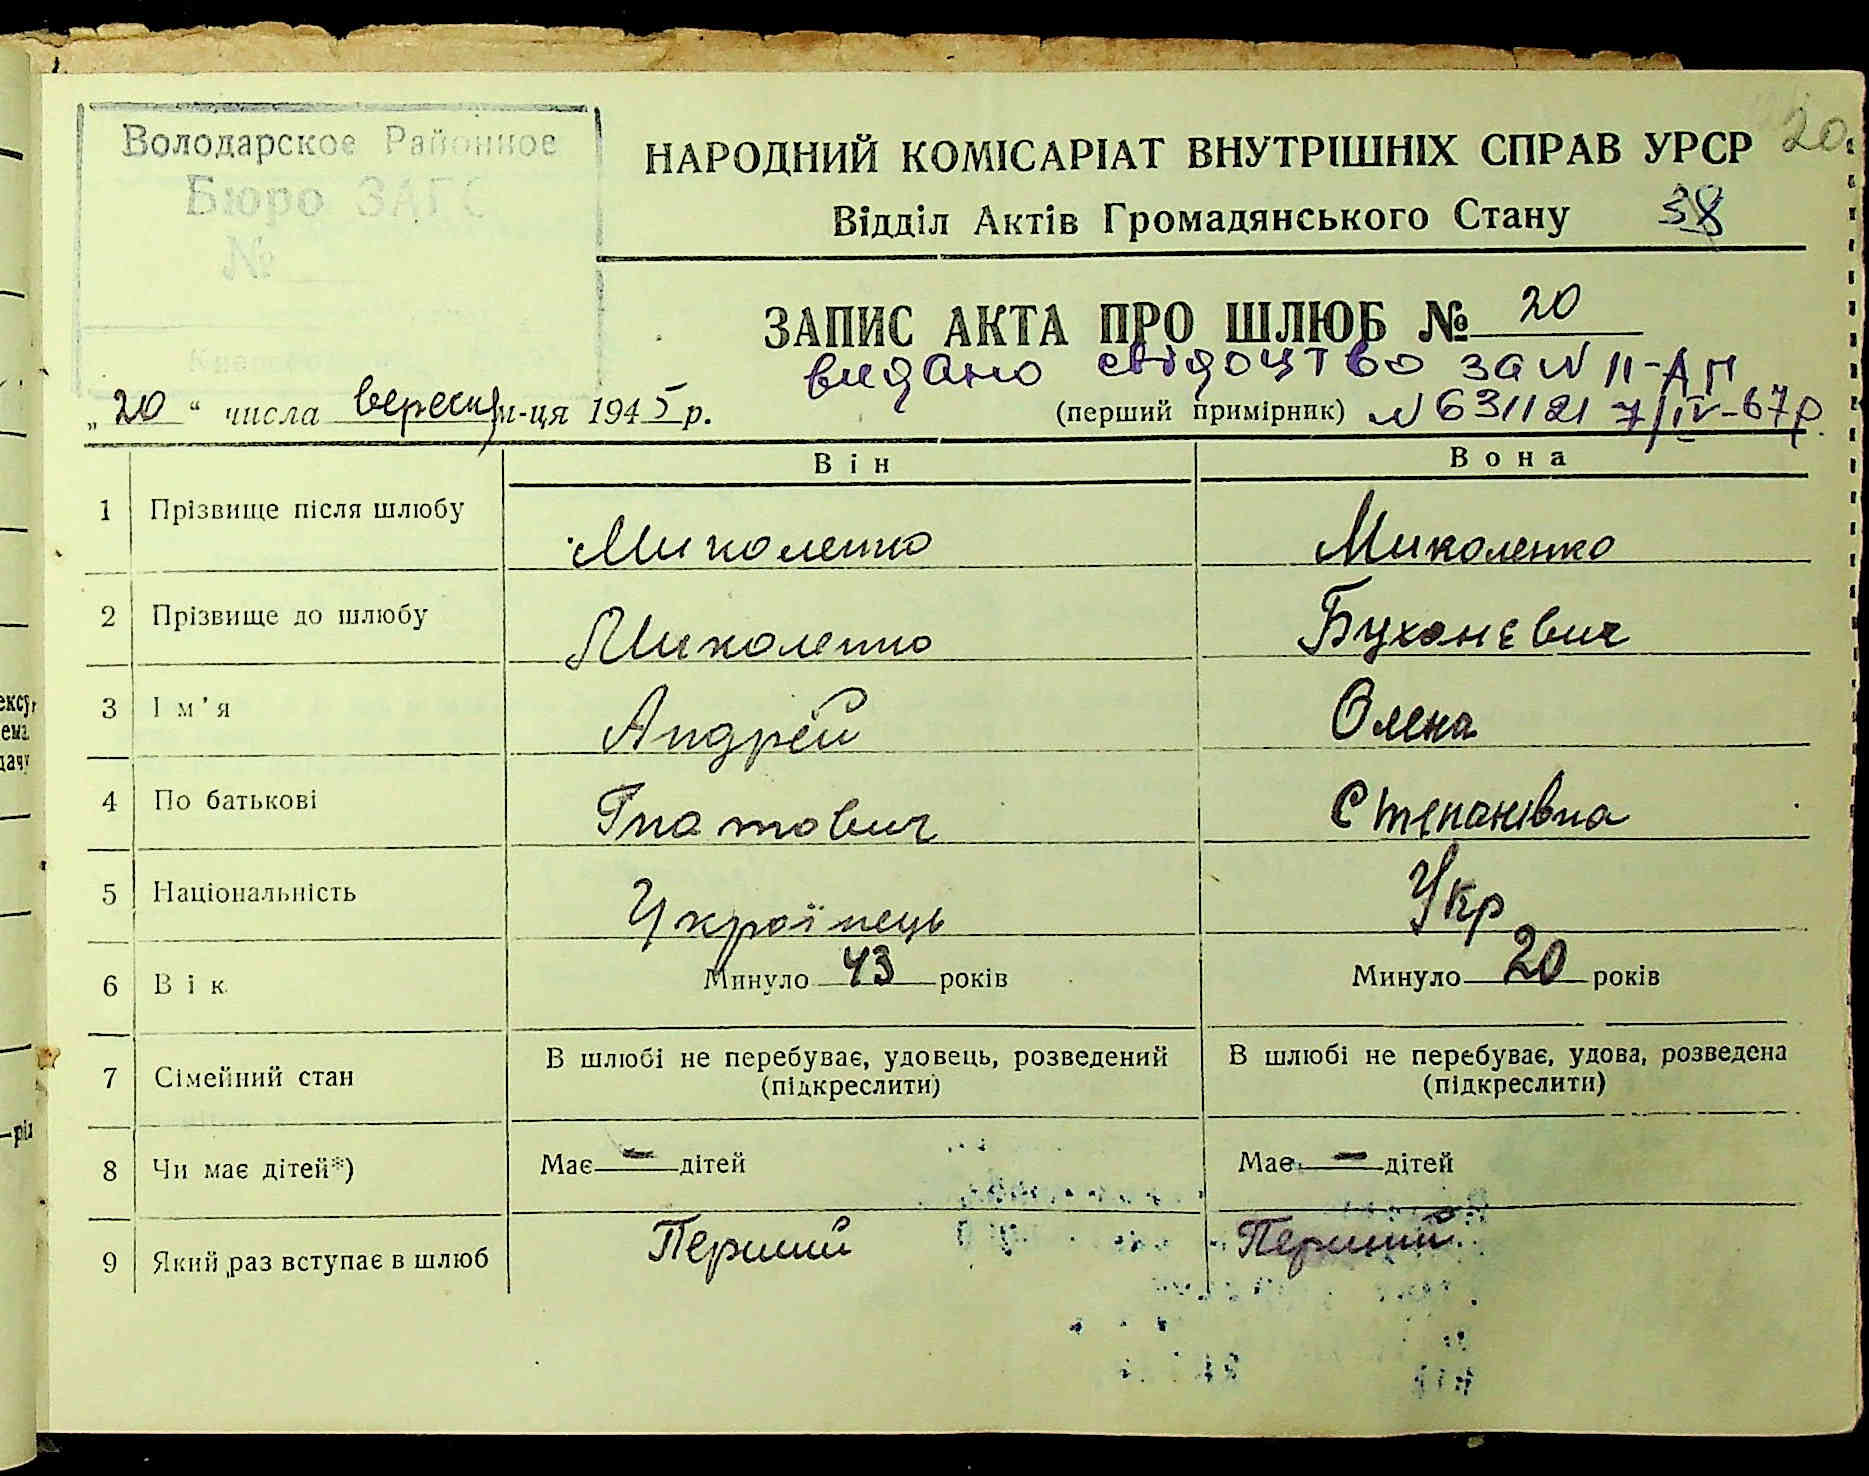 Володарское Районное
Бюро ЗАГС
№
20
НАРОДНИЙ КОМІСАРІАТ ВНУТРІШНІХ СПРАВ УРСР
Відділ Актів Громадянського Стану 38
ЗАПИС АКТА ПРО ШЛЮБ № 20
видано свідоцтво за N II-АП
„20“ числа вересня м-ця 1945 р. (перший примірник) N 631121 7/IV-67р.
Він Вона
1 Прізвище після шлюбу Миколенко Миколенко
2 Прізвище до шлюбу Миколенко Буханєвич
3 Ім'я Андрей Олена
4 По батькові Гнатович Степанівна
5 Національність Українець Укр
6 Вік Минуло 43 років Минуло 20 років
7 Сімейний стан В шлюбі не перебуває, удовець, розведений (підкреслити) В шлюбі не перебуває, удова, розведена (підкреслити)
8 Чи має дітей*) Має — дітей Має — дітей
9 Який раз вступає в шлюб Перший Перший